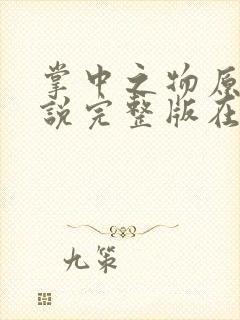 掌中之物原
说完整版在
九策